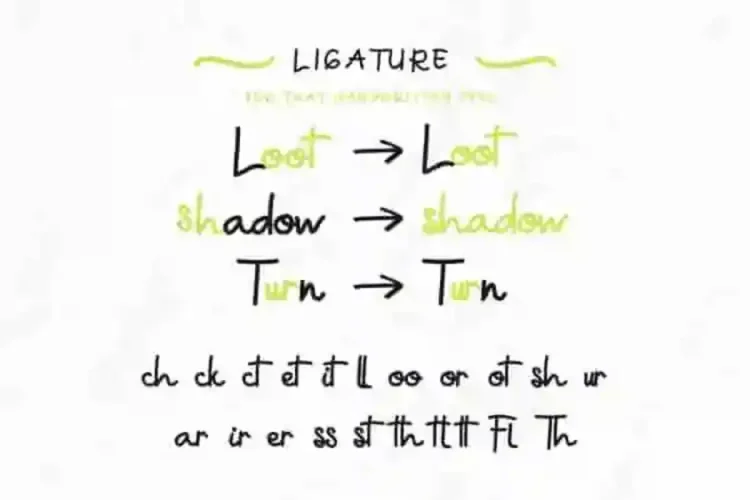 LIGATURE
FOR THAT HANDWRITTEN FEEL
Loot → Loot
shadow → shadow
Turn → Turn
ch ck ct et it ll oo or ot sh ur
ar ir er ss st th tt tt Fi Th